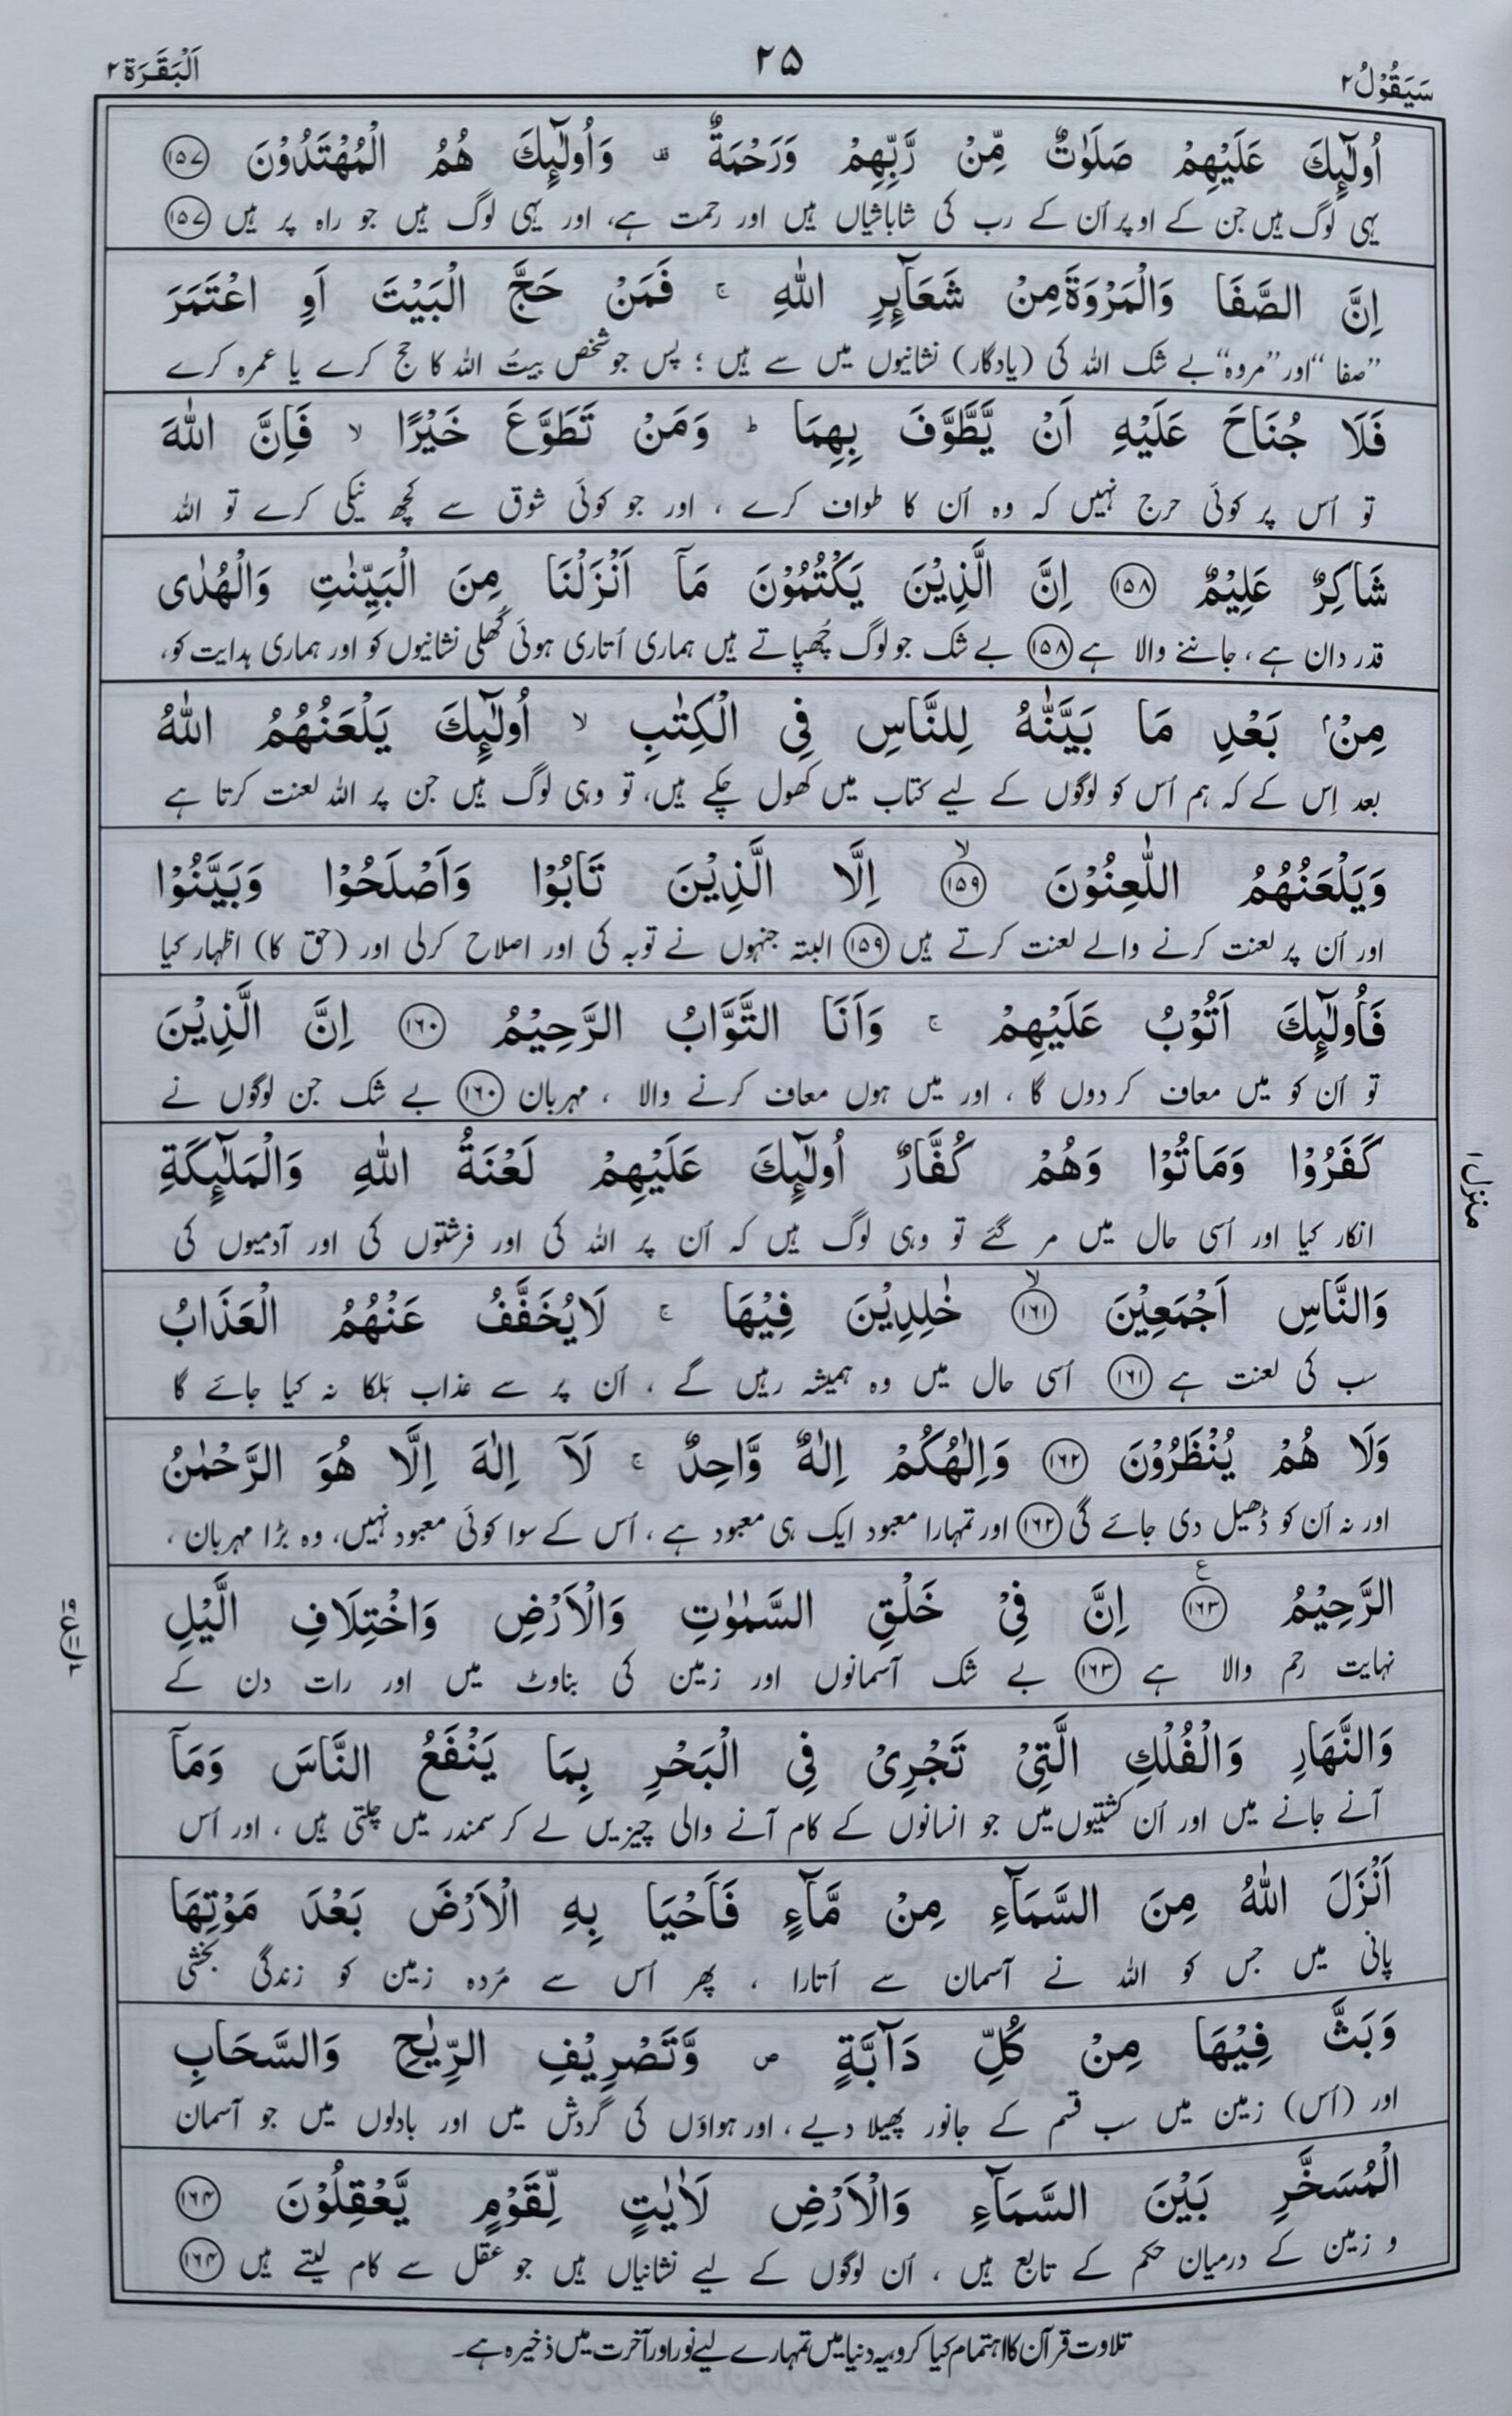 سَيَقُوْلُ ٢
٢٥
اَلْبَقَرَة ٢
اُولٰٓئِكَ عَلَيْهِمْ صَلَوٰتٌ مِّنْ رَّبِّهِمْ وَرَحْمَةٌ ۫ وَاُولٰٓئِكَ هُمُ الْمُهْتَدُوْنَ ١٥٧
یہی لوگ ہیں جن کے اوپر اُن کے رب کی شاباشیاں ہیں اور رحمت ہے، اور یہی لوگ ہیں جو راہ پر ہیں ١٥٧
اِنَّ الصَّفَا وَالْمَرْوَةَ مِنْ شَعَآئِرِ اللّٰهِ ۚ فَمَنْ حَجَّ الْبَيْتَ اَوِ اعْتَمَرَ
”صفا“ اور ”مروہ“ بے شک اللہ کی (یادگار) نشانیوں میں سے ہیں ؛ پس جو شخص بیتُ اللہ کا حج کرے یا عمرہ کرے
فَلَا جُنَاحَ عَلَيْهِ اَنْ يَّطَّوَّفَ بِهِمَا ؕ وَمَنْ تَطَوَّعَ خَيْرًا ۙ فَاِنَّ اللّٰهَ
تو اُس پر کوئی حرج نہیں کہ وہ اُن کا طواف کرے ، اور جو کوئی شوق سے کچھ نیکی کرے تو اللہ
شَاكِرٌ عَلِيْمٌ ١٥٨ اِنَّ الَّذِيْنَ يَكْتُمُوْنَ مَآ اَنْزَلْنَا مِنَ الْبَيِّنٰتِ وَالْهُدٰى
قدر دان ہے، جاننے والا ہے ١٥٨ بے شک جو لوگ چُھپاتے ہیں ہماری اُتاری ہوئی کُھلی نشانیوں کو اور ہماری ہدایت کو،
مِنْۢ بَعْدِ مَا بَيَّنّٰهُ لِلنَّاسِ فِى الْكِتٰبِ ۙ اُولٰٓئِكَ يَلْعَنُهُمُ اللّٰهُ
بعد اِس کے کہ ہم اُس کو لوگوں کے لیے کتاب میں کھول چکے ہیں، تو وہی لوگ ہیں جن پر اللہ لعنت کرتا ہے
وَيَلْعَنُهُمُ اللّٰعِنُوْنَ ١٥٩ ۙ اِلَّا الَّذِيْنَ تَابُوْا وَاَصْلَحُوْا وَبَيَّنُوْا
اور اُن پر لعنت کرنے والے لعنت کرتے ہیں ١٥٩ البتہ جنہوں نے توبہ کی اور اصلاح کرلی اور (حق کا) اظہار کیا
فَاُولٰٓئِكَ اَتُوْبُ عَلَيْهِمْ ۚ وَاَنَا التَّوَّابُ الرَّحِيْمُ ١٦٠ اِنَّ الَّذِيْنَ
تو اُن کو میں معاف کردوں گا ، اور میں ہوں معاف کرنے والا ، مہربان ١٦٠ بے شک جن لوگوں نے
كَفَرُوْا وَمَاتُوْا وَهُمْ كُفَّارٌ اُولٰٓئِكَ عَلَيْهِمْ لَعْنَةُ اللّٰهِ وَالْمَلٰٓئِكَةِ
انکار کیا اور اُسی حال میں مر گئے تو وہی لوگ ہیں کہ اُن پر اللہ کی اور فرشتوں کی اور آدمیوں کی
وَالنَّاسِ اَجْمَعِيْنَ ١٦١ ۙ خٰلِدِيْنَ فِيْهَا ۚ لَايُخَفَّفُ عَنْهُمُ الْعَذَابُ
سب کی لعنت ہے ١٦١ اُسی حال میں وہ ہمیشہ رہیں گے ، اُن پر سے عذاب ہلکا نہ کیا جائے گا
وَلَا هُمْ يُنْظَرُوْنَ ١٦٢ وَاِلٰهُكُمْ اِلٰهٌ وَّاحِدٌ ۚ لَآ اِلٰهَ اِلَّا هُوَ الرَّحْمٰنُ
اور نہ اُن کو ڈھیل دی جائے گی ١٦٢ اور تمہارا معبود ایک ہی معبود ہے ، اُس کے سوا کوئی معبود نہیں، وہ بڑا مہربان ،
الرَّحِيْمُ ١٦٣ ع اِنَّ فِىْ خَلْقِ السَّمٰوٰتِ وَالْاَرْضِ وَاخْتِلَافِ الَّيْلِ
نہایت رحم والا ہے ١٦٣ بے شک آسمانوں اور زمین کی بناوٹ میں اور رات دن کے
وَالنَّهَارِ وَالْفُلْكِ الَّتِىْ تَجْرِىْ فِى الْبَحْرِ بِمَا يَنْفَعُ النَّاسَ وَمَآ
آنے جانے میں اور اُن کشتیوں میں جو انسانوں کے کام آنے والی چیزیں لے کر سمندر میں چلتی ہیں ، اور اُس
اَنْزَلَ اللّٰهُ مِنَ السَّمَآءِ مِنْ مَّآءٍ فَاَحْيَا بِهِ الْاَرْضَ بَعْدَ مَوْتِهَا
پانی میں جس کو اللہ نے آسمان سے اُتارا ، پھر اُس سے مُردہ زمین کو زندگی بخشی
وَبَثَّ فِيْهَا مِنْ كُلِّ دَآبَّةٍ ص وَّتَصْرِيْفِ الرِّيٰحِ وَالسَّحَابِ
اور (اُس) زمین میں سب قسم کے جانور پھیلا دیے ، اور ہواؤں کی گردش میں اور بادلوں میں جو آسمان
الْمُسَخَّرِ بَيْنَ السَّمَآءِ وَالْاَرْضِ لَاٰيٰتٍ لِّقَوْمٍ يَّعْقِلُوْنَ ١٦٤
و زمین کے درمیان حکم کے تابع ہیں ، اُن لوگوں کے لیے نشانیاں ہیں جو عقل سے کام لیتے ہیں ١٦٤
منزل ١
تلاوت قرآن کا اہتمام کیا کرو، یہ دنیا میں تمہارے لیے نور اور آخرت میں ذخیرہ ہے۔